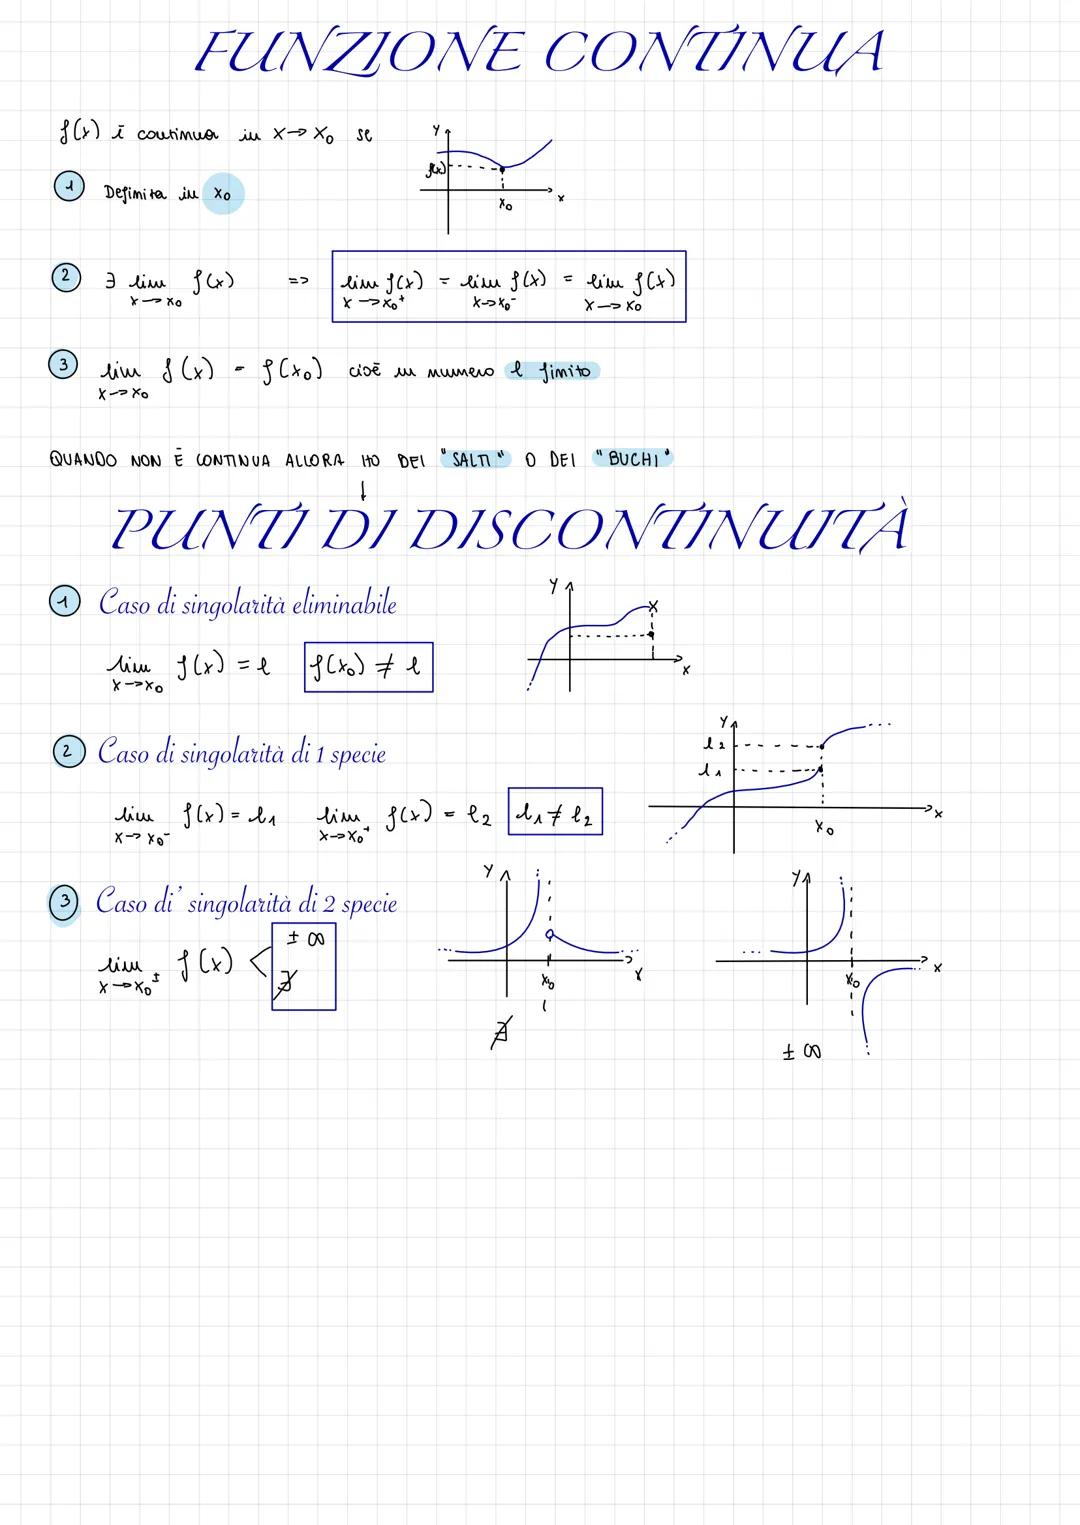 FUNZIONE CONTINUA
f(x) ē continua in x→x₀ se
y
f(x)
x₀
x
1 Definita in x₀
2 ∃ lim x→x₀ f(x) => lim x→x₀⁺ f(x) = lim x→x₀⁻ f(x) = lim x→x₀ f(x)
3 lim x→x₀ f(x) = f(x₀) cioē un numero l finito
QUANDO NON Ē CONTINUA ALLORA HO DEI "SALTI" O DEI "BUCHI"
↓
PUNTI DI DISCONTINUITÀ
1 Caso di singolarità eliminabile
y
x
x
lim x→x₀ f(x) = l f(x₀) ≠ l
2 Caso di singolarità di 1 specie
y
l₂
l₁
x₀
x
lim x→x₀⁻ f(x) = l₁ lim x→x₀⁺ f(x) = l₂ l₁ ≠ l₂
3 Caso di' singolarità di 2 specie
lim x→x₀± f(x) < ± ∞
∄
y
x₀
x
∄
y
x₀
x
± ∞